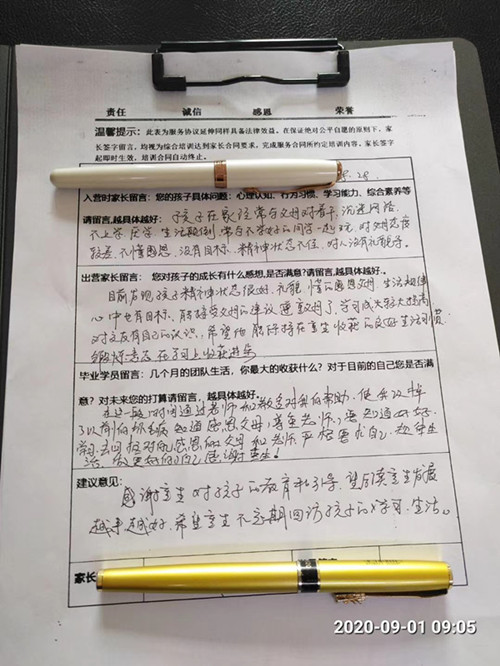 责任 诚信 感恩 荣誉
温馨提示：此表为服务协议延伸同样具备法律效益。在保证绝对公平自愿的原则下，家
长签字留言，均视为综合培训达到家长合同要求。完成服务合同所约定培训内容。家长签字
起即时生效，培训合同自动终止。
入营时家长留言：您的孩子具体问题：心理认知、行为习惯、学习能力、综合素养等
请留言,越具体越好： 孩子在家经常与父母对着干,沉迷网络
不上学 厌学 生活颓倒,常与不学好的同学一起玩,对外态度
较差,不懂感恩,没有目标,精神状态不佳,对人没有礼貌等。
出营家长留言： 您对孩子的成长有什么感想,是否满意?请留言,越具体好.。
目前发现孩子精神状态很好,礼貌,懂的感恩父母,生活规律
心中也有目标,能接受父母的建议,学习成失较大提高
对交友有自己的认识,希望他能保持在营生收获的良好生活习惯
毕业学员留言：几个月的团队生活，你最大的收获什么？对于目前的自己您是否满
意？对未来您的打算请留言，越具体越好。
在这一段时间通过老师和教官对我的帮助,使我改掉
了以前的坏毛病 知道感恩父母,尊重老师,要好好
学习 去回报对我感恩的父母和老师 严格要求自己
感谢
建议意见：
感谢 对孩子的教育和引导,望 发展
越来越好.希望 不定期回访孩子的学习.生活。
家长
2020-09-01 09:05